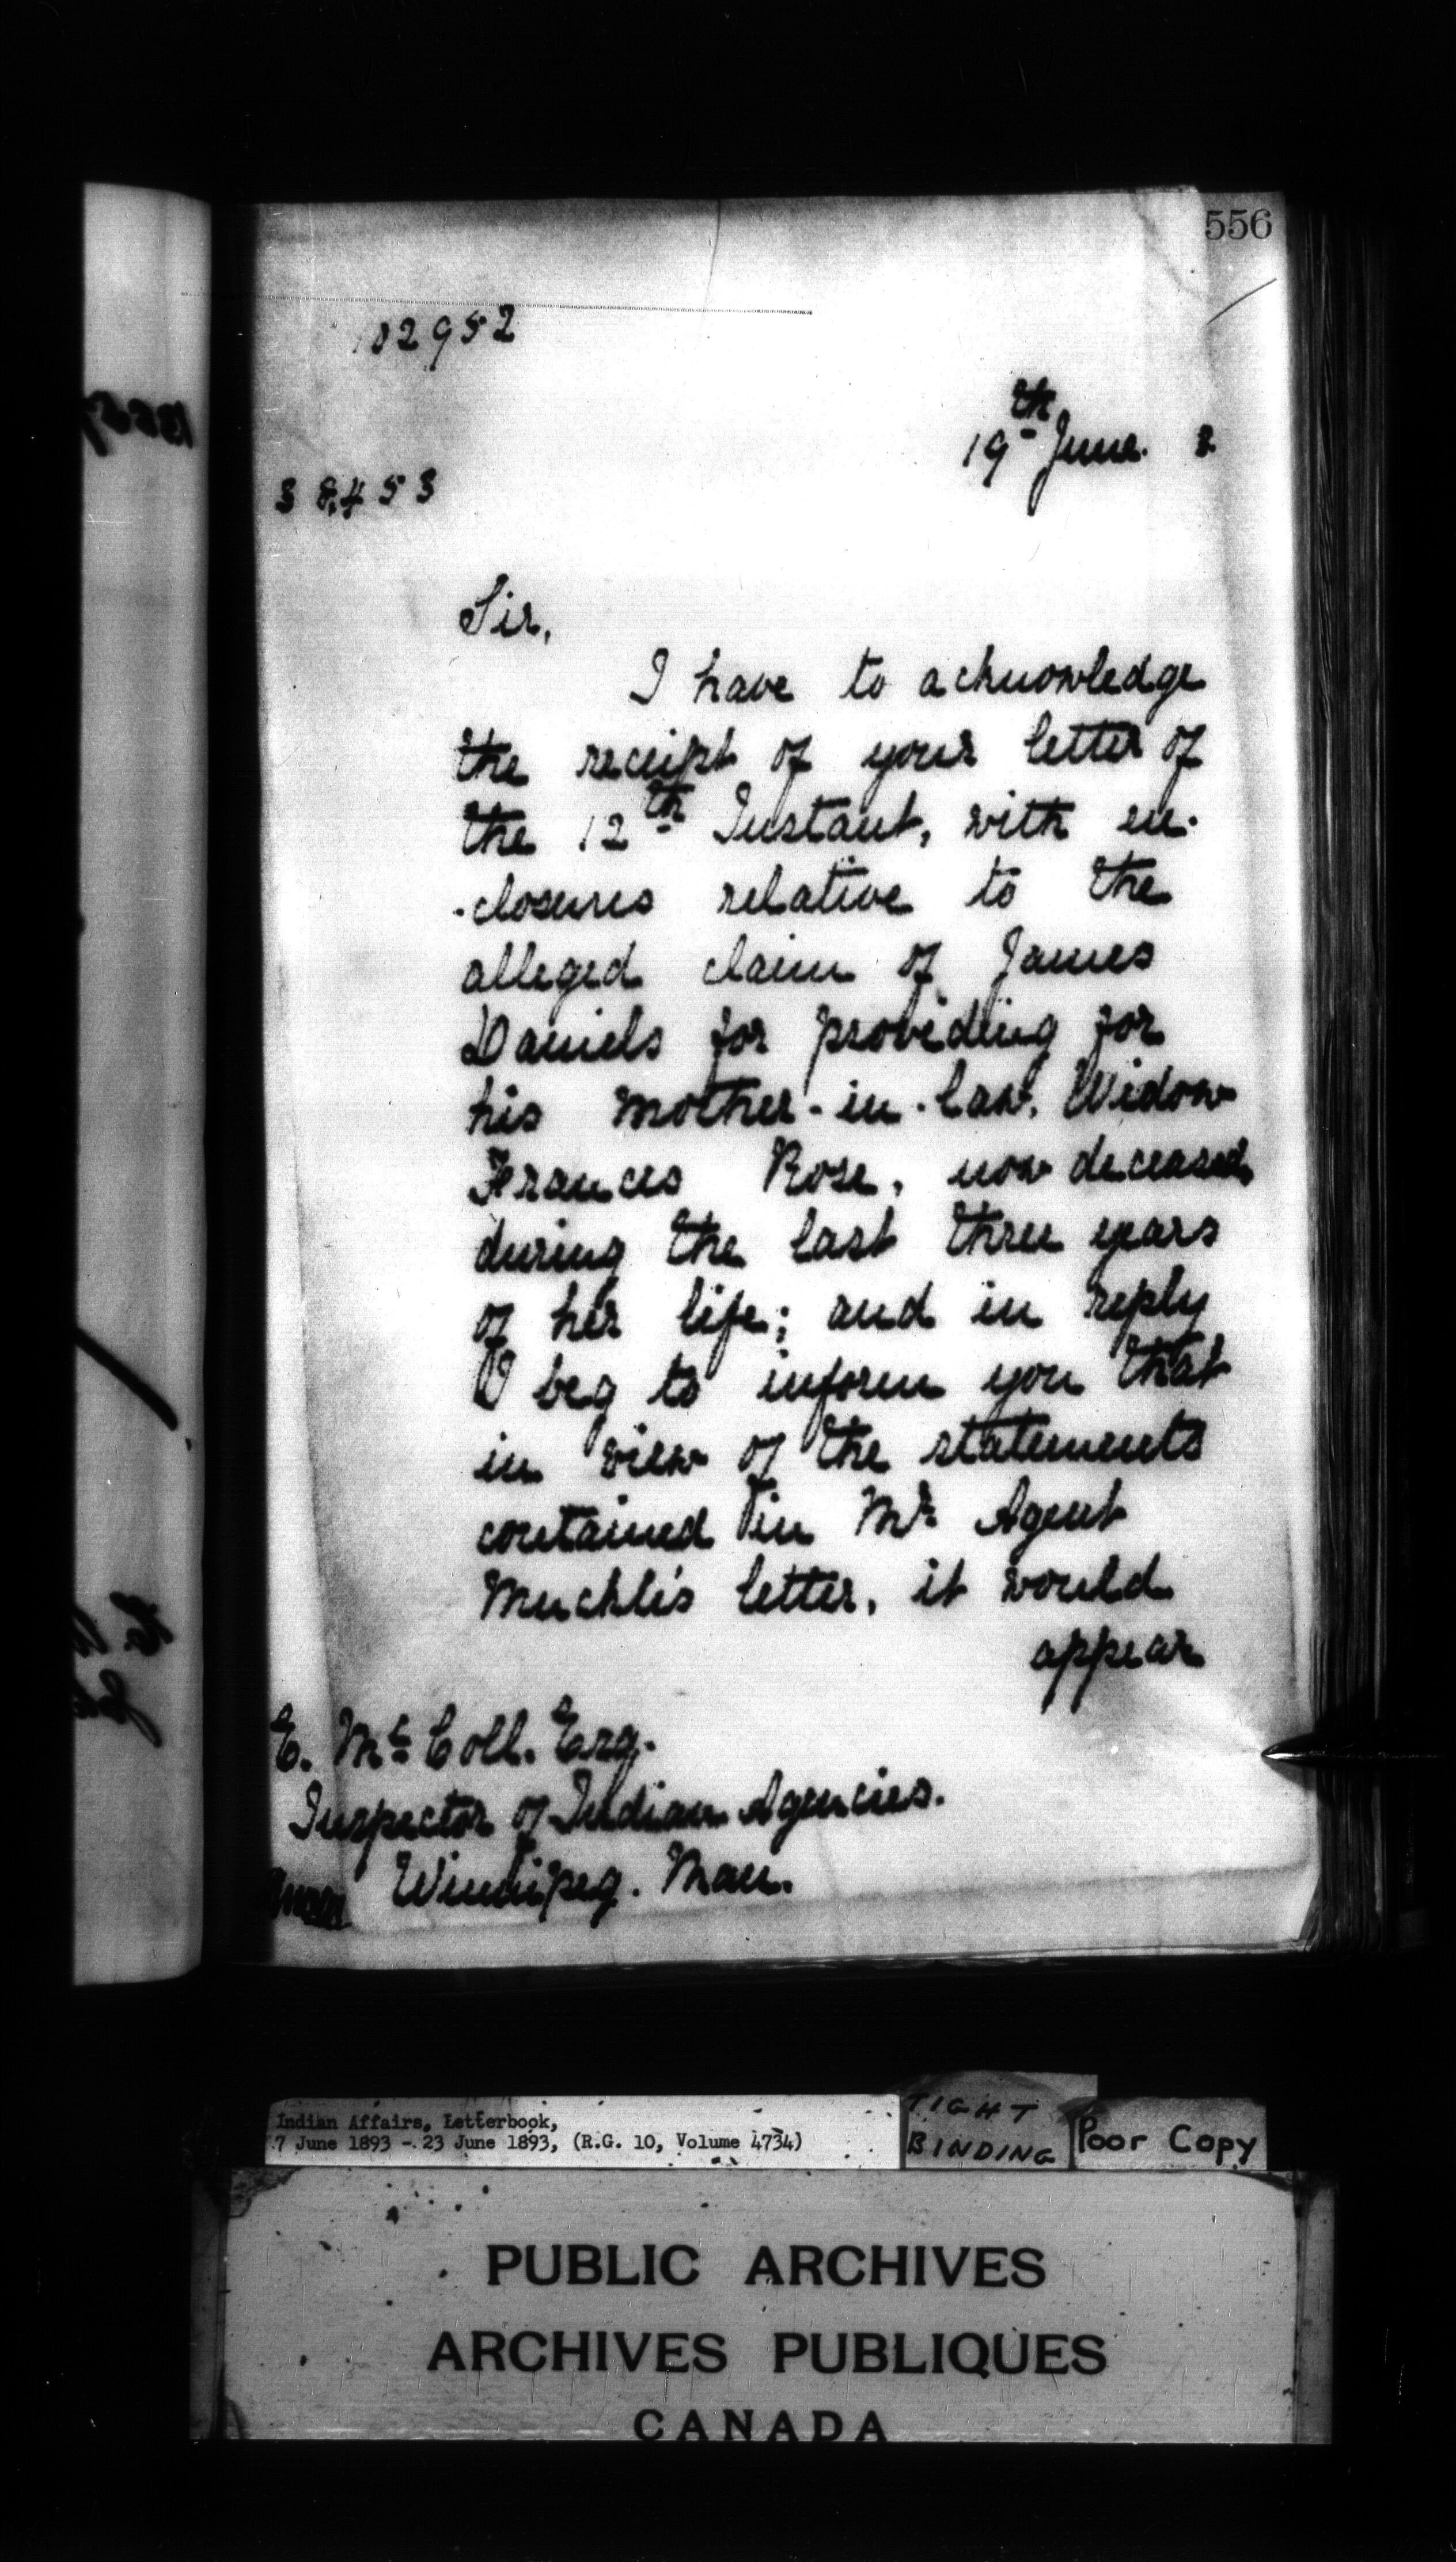 556
102952
19th June. 3.
38,453
Sir,
I have to acknowledge
the receipt of your letter of
the 12th Instant, with en-
-closures relative to the
alleged claim of James
Daniels for providing for
his mother-in-law, Widow
Frances Rose, now deceased,
during the last three years
of her life; and in reply
I beg to inform you that
in view of the statements
contained in Mr. Agent
Muckle's letter, it would
appear
E. McColl. Esq.
Inspector of Indian Agencies.
Winnipeg. Man.
Indian Affairs, Letterbook,
7 June 1893 - 23 June 1893, (R.G. 10, Volume 4734)
TIGHT
BINDING
Poor Copy
PUBLIC ARCHIVES
ARCHIVES PUBLIQUES
CANADA